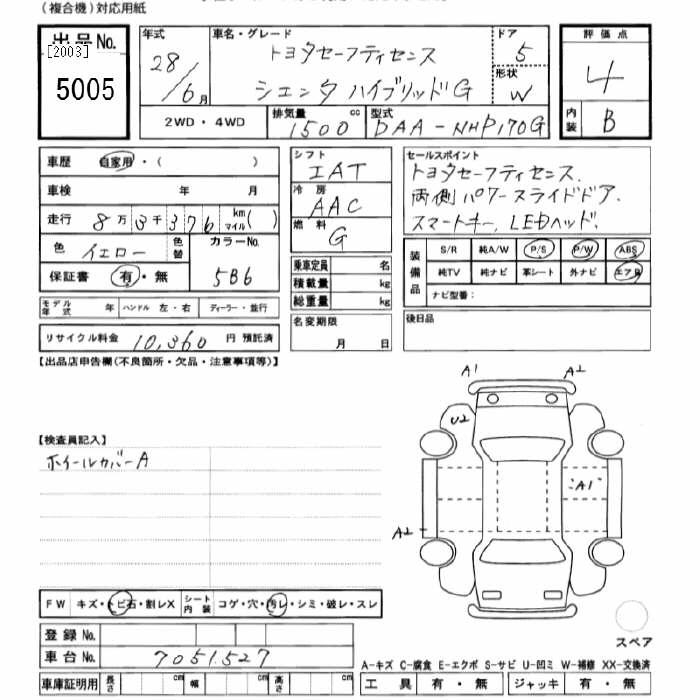 (複合機)対応用紙
出品No.
[2003]
5005
年式
28/6月
車名・グレード
トヨタセーフティセンス
シエンタ ハイブリッドG
ドア
5
形状
W
2WD・4WD
排気量
1500cc
型式
DAA-NHP170G
評価点
4
内装
B
車歴 自家用・( )
車検 年 月
走行 8万3千376 km マイル( )
色 イエロー 色替 カラーNo. 5B6
保証書 有・無
モデル年式 年 ハンドル 左・右 ディーラー・並行
リサイクル料金 10,360 円 預託済
シフト
IAT
冷房
AAC
燃料
G
乗車定員 名
積載量 kg
総重量 kg
名変期限
月 日
セールスポイント
トヨタセーフティセンス.
両側パワースライドドア.
スマートキー. LEDヘッド.
装備品
S/R 純A/W P/S P/W ABS
純TV 純ナビ 革シート 外ナビ エアB
ナビ型番:
後日品
【出品店申告欄(不良箇所・欠品・注意事項等)】
【検査員記入】
ホイールカバーA
A1 A2
U2
A1
A2
FW キズ・トビ石・割レX シート内装 コゲ・穴・汚レ・シミ・破レ・スレ
登録No.
車台No. 7051527
車庫証明用 長さ cm 幅 cm 高さ cm
スペア
A-キズ C-腐食 E-エクボ S-サビ U-凹ミ W-補修 XX-交換済
工具 有・無 ジャッキ 有・無